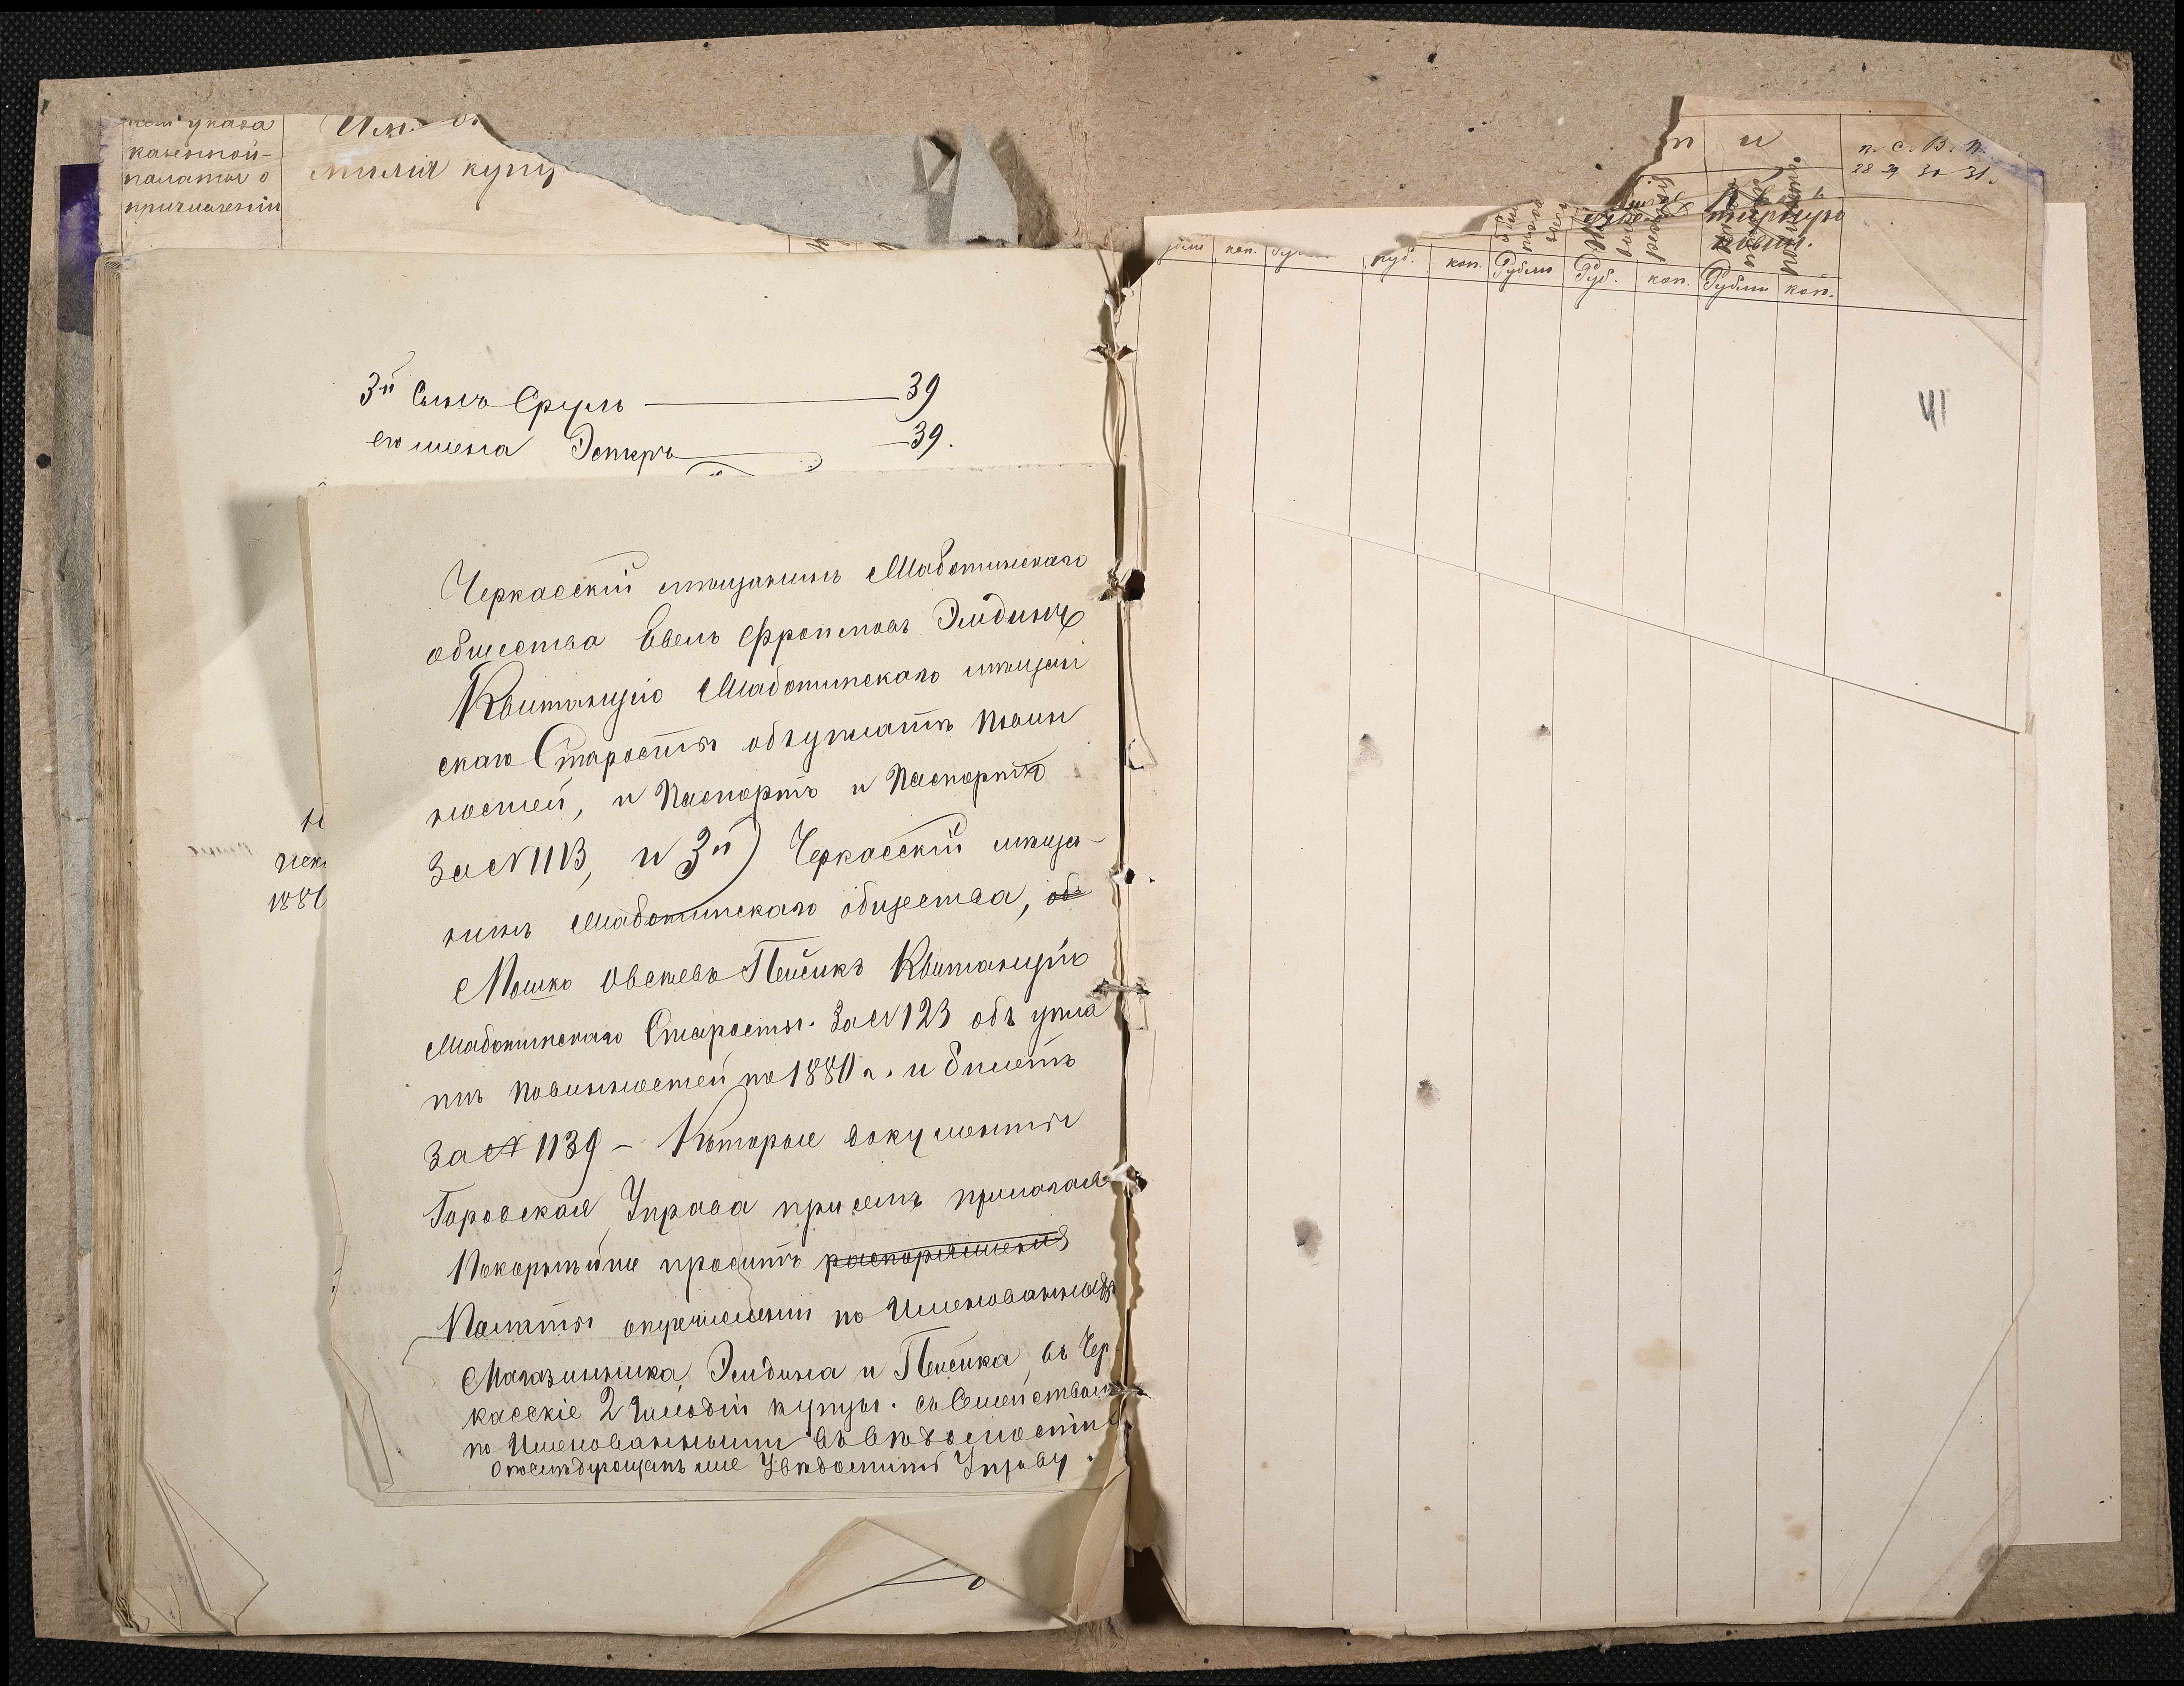 указа
казенной
палаты о
причислении
милія купц
3й Сынъ Сруль — 39
его жена Эстеръ — 39.
Черкасскій мѣщанинъ Млаботинскаго
общества Евель Фроимовъ Эйдинъ
Квитанцію Млаботинскаго мѣщан
скаго Старосты объ уплатѣ повин
ностей, и Паспортъ и Паспортъ
За № 1113, и 3й) Черкасскій мѣща-
нинъ Млаботинскаго общества, об
Мошко Овсеевъ Пейсикъ Квитанцію
Млаботинскаго Старосты. За № 123 объ упла
тѣ повинностей по 1880 г. и билетъ
За № 1139 – Которые документы
Городская Управа при семъ прилагая
Покорнѣйше проситъ распоряженія
Палаты о причисленіи по Именованныхъ
Магазинника, Эйдина и Пейсика, въ Чер
касскіе 2 Гильдіи купцы. съ Семействами
по Именованными въ вѣдомости
О послѣдующемъ же Увѣдомить Управу.
1880
п и
п. С. В. п.
28 29 30 31.
коп.
руб. коп. Рубли Руб. коп. Рубли коп.
41